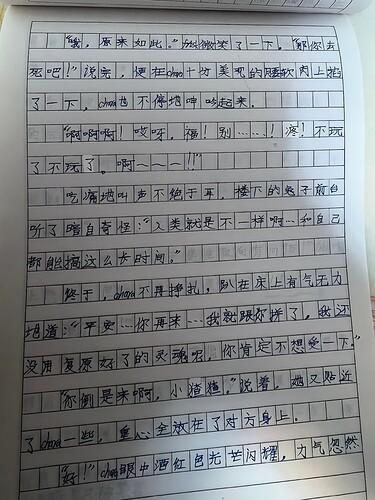 “哦，原来如此。”她微笑了一下。“那你去
死吧！”说完，便在chara十分美观的腰软肉上掐
了一下，chara也不停地呻吟起来。
“啊啊啊！哎呀，福！别……！疼！不玩
了不玩了。啊～～～！！”
吃痛地叫声不绝于耳，楼下的兔子前台
听了暗自奇怪：“人类就是不一样啊…和自己
都能搞这么长时间。”
终于，chara不再挣扎，趴在床上有气无力
地道：“平安…你再来…我就跟你拼了，我还
没用复原好了的灵魂呢，你肯定不想受一下。”
“你倒是来啊，小猹猹。”说着，她又贴近
了chara一些，重心全放在了对方身上。
“好！”chara眼中酒红色光芒闪耀，力气忽然